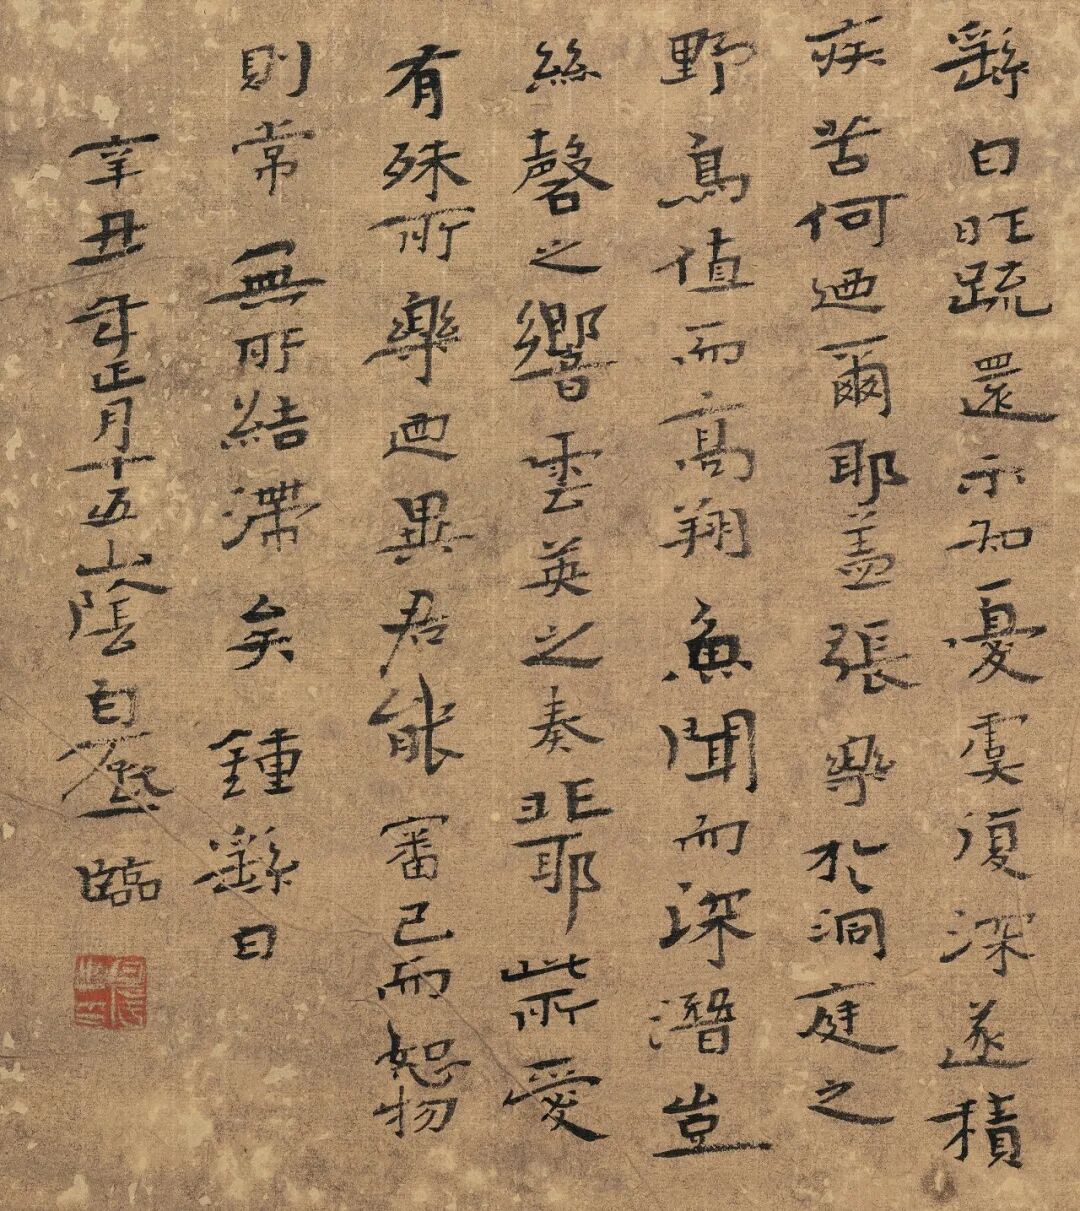 繇白昨疏還示知憂虞復深遂積
疾苦何迺爾耶蓋張樂於洞庭之
野鳥值而高翔魚聞而深潛豈
絲磬之響雲英之奏非耶此所愛
有殊所樂迺異君能審己而恕物
則常無所結滯矣鍾繇白
辛丑年正月十五山陰白廛臨